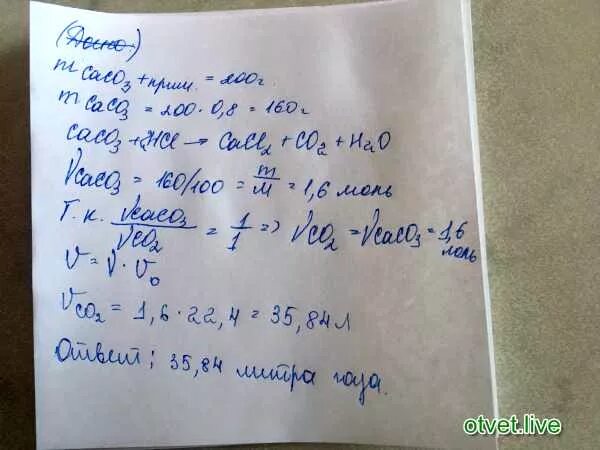 (Дано:)
m CaCO3 + прим. = 200г.
m CaCO3 = 200 · 0,8 = 160г
CaCO3 + 2HCl → CaCl2 + CO2 + H2O
νCaCO3 = 160/100 = m/M = 1,6 моль
Т.к. νCaCO3/νCO2 = 1/1 => νCO2 = νCaCO3 = 1,6 моль
V = ν · V0
VCO2 = 1,6 · 22,4 = 35,84 л
Ответ: 35,84 литра газа.
otvet.live